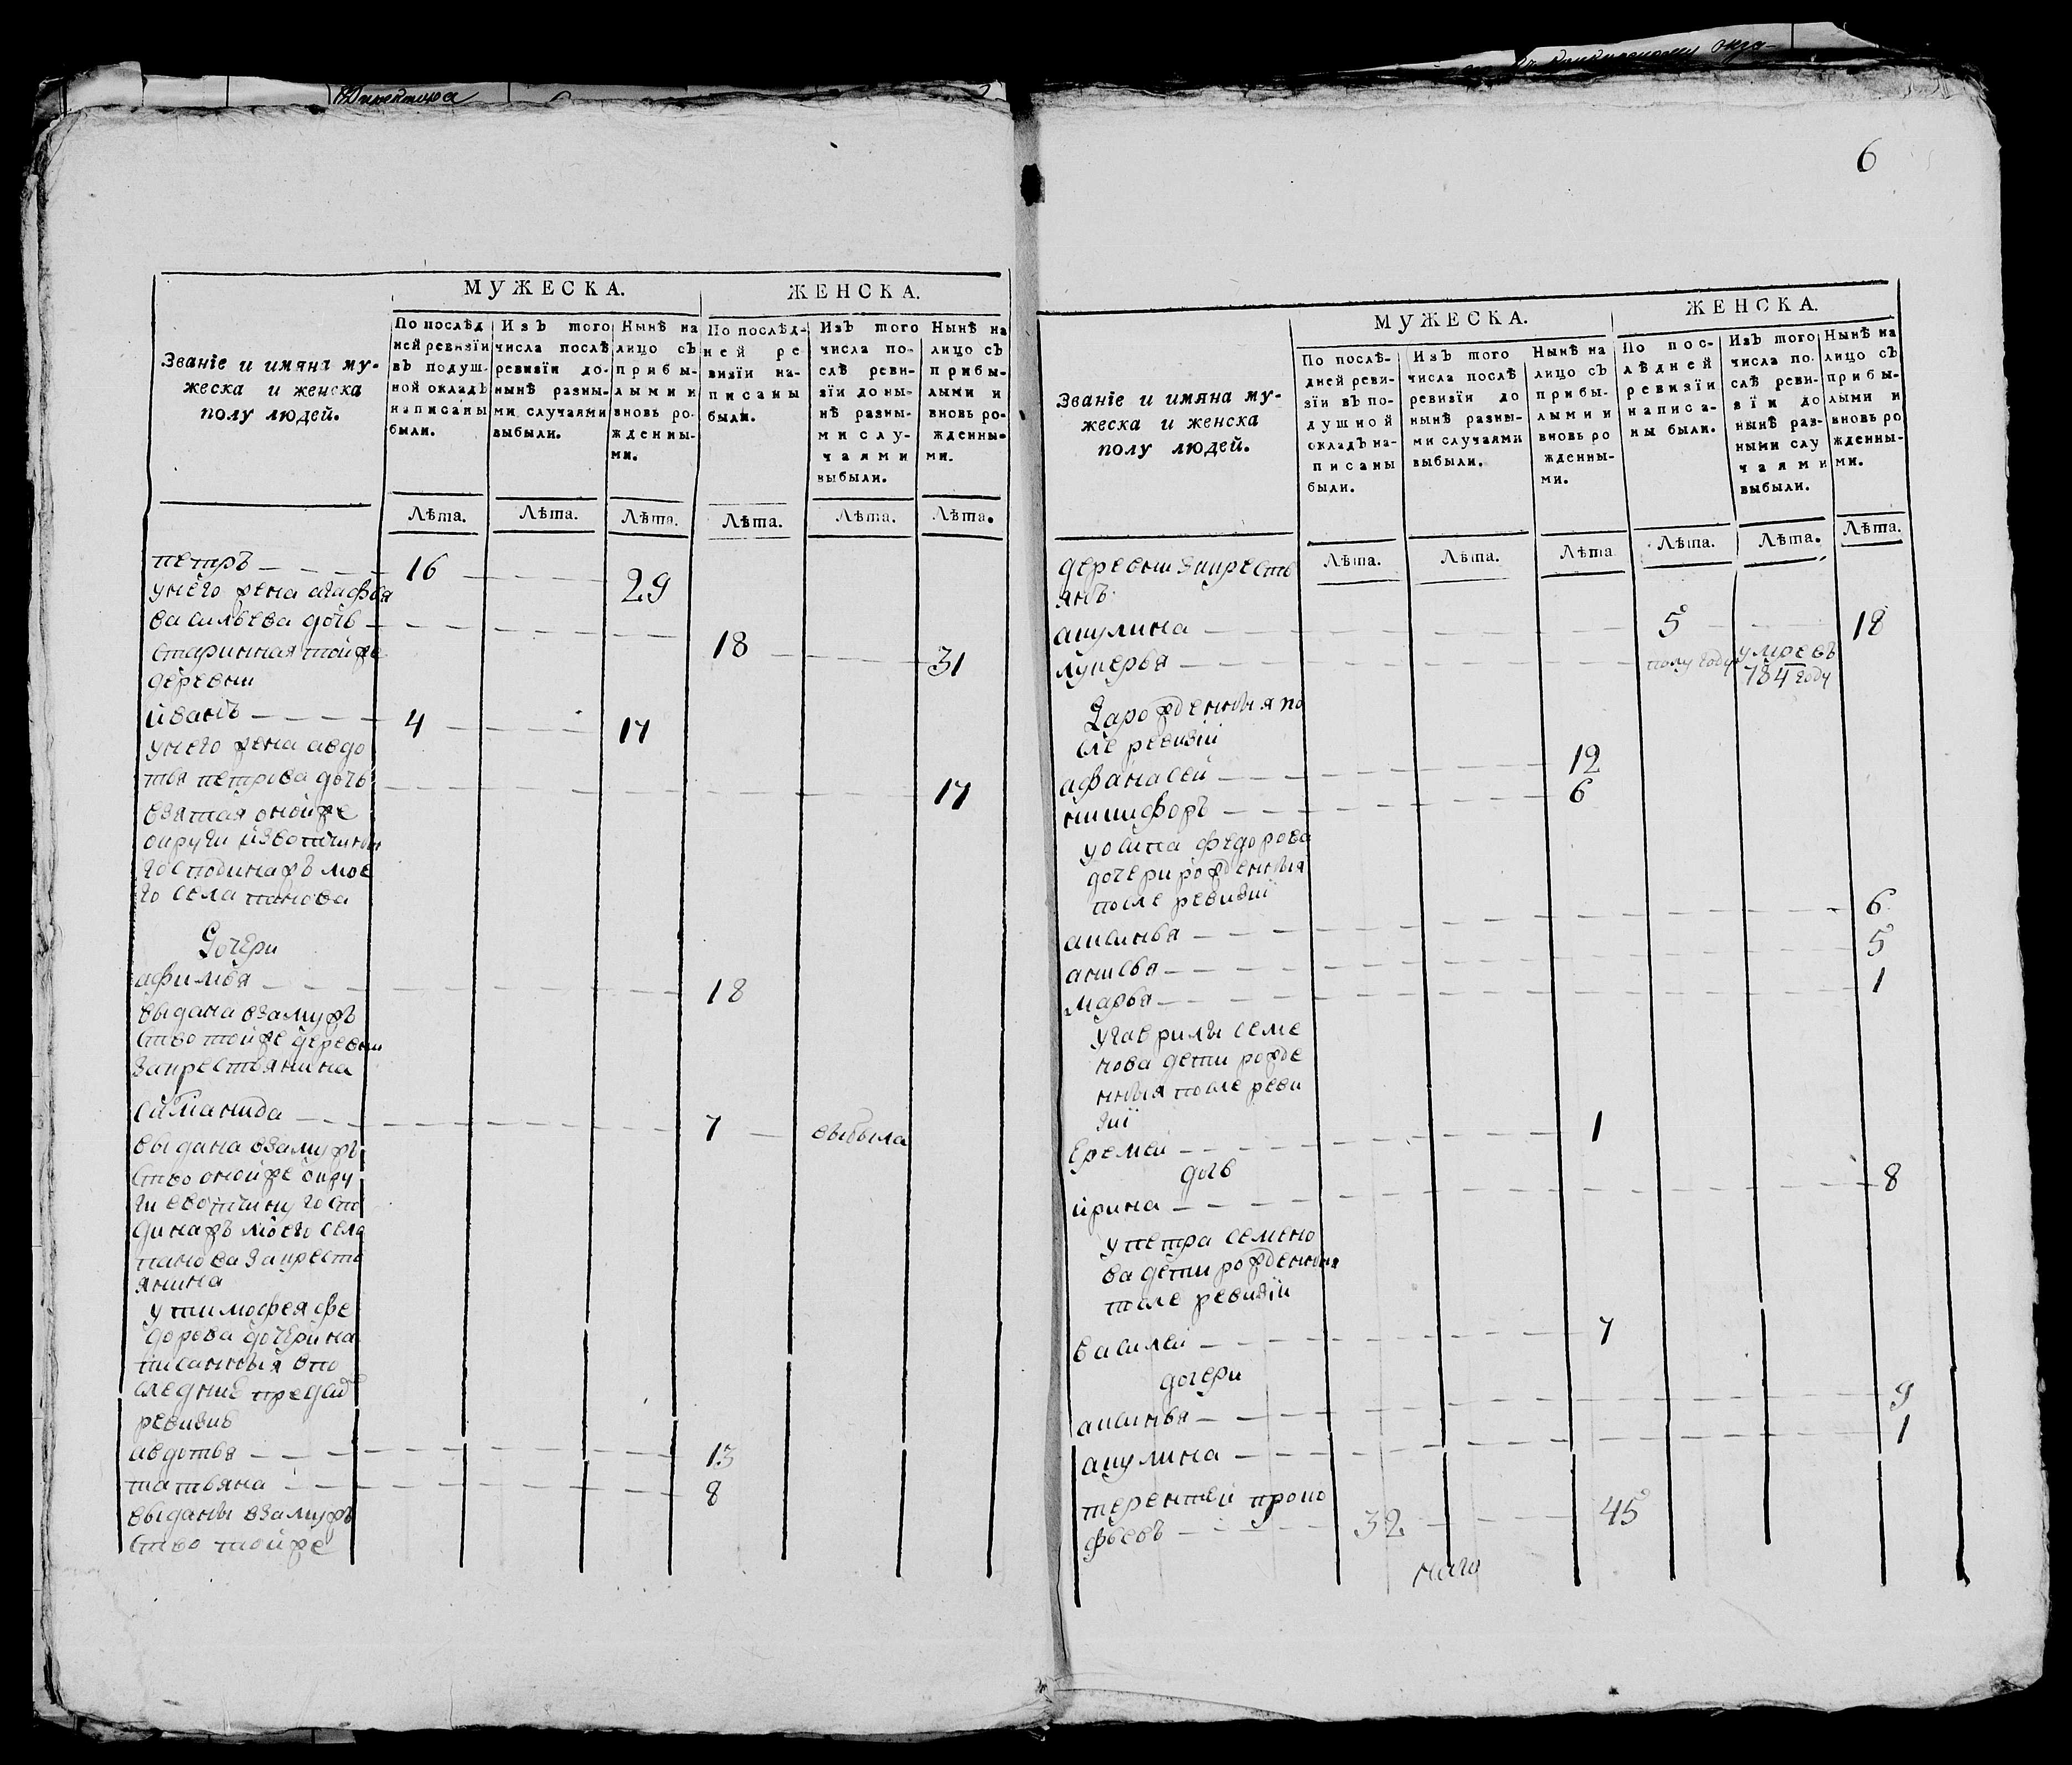 Директора
6
МУЖЕСКА.
ЖЕНСКА.
Званіе и имяна му-
жеска и женска
полу людей.
По послѣд
ней ревизіи
въ подуш-
ной окладъ
написаны
были.
Изъ того
числа послѣ
ревизіи до-
нынѣ разны-
ми случаями
выбыли.
Нынѣ на
лицо съ
прибы-
лыми и
вновь ро-
жденны-
ми.
По послѣд-
ней ре
визіи на-
писаны
были.
Изъ того
числа по-
слѣ реви-
зіи до ны-
нѣ разны-
ми слу-
чаями
выбыли.
Нынѣ на
лицо съ
прибы-
лыми и
вновь ро-
жденны-
ми.
Лѣта. Лѣта. Лѣта. Лѣта. Лѣта. Лѣта.
петръ 16 29
унего жена агафья
васильева дочь 18 31
старинная тойже
деревни
иванъ 4 17
унего жена авдо
тья петрова дочь 17
взятая онойже
округи извотчины
господинажъ мое
го села панова
Дочери
афимья 18
выдана взамуж
ство тойже деревни
закрестьянина
7 выбыла
выдана взамуж
ство онойже окру
ги ввотчину госпо
динажъ моего села
панова закресть
янина
у тимофея фе
дорова дочери на
писанныя впо
следние пред
ревизие
авдотья 13
татьяна 8
выданы взамуж
ство тойже
МУЖЕСКА.
ЖЕНСКА.
Званіе и имяна му-
жеска и женска
полу людей.
По послѣ-
дней реви-
зіи въ по-
душной
окладъ на-
писаны
были.
Изъ того
числа послѣ
ревизіи до
нынѣ разны-
ми случаями
выбыли.
Нынѣ на
лицо съ
прибы-
лыми и
вновь ро
жденны-
ми.
По пос-
лѣдней
ревизіи
написа-
ны были.
Изъ того
числа по-
слѣ реви-
зіи до
нынѣ раз-
ными слу
чаями
выбыли.
Нынѣ на
лицо съ
прибы-
лыми и
вновь ро
жденны-
ми.
Лѣта. Лѣта. Лѣта Лѣта. Лѣта. Лѣта.
деревни закресть
янъ
акулина 5 18
лукерья полугоду умре въ
784 году
Зарожденныя по
сле ревизіи
афанасей 12
никифоръ 6
федорова
дочери рожденныя
после ревизіи
аксинья 6
анисья 5
марья 1
угаврилы семе
нова дети рожде
нныя после реви
зіи
еремей 1
дочь
ирина 8
упетра семено
ва дети рожденныя
после ревизіи
василей 7
дочери
аксинья 9
акулина 1
терентей проко
фьевъ 32 45